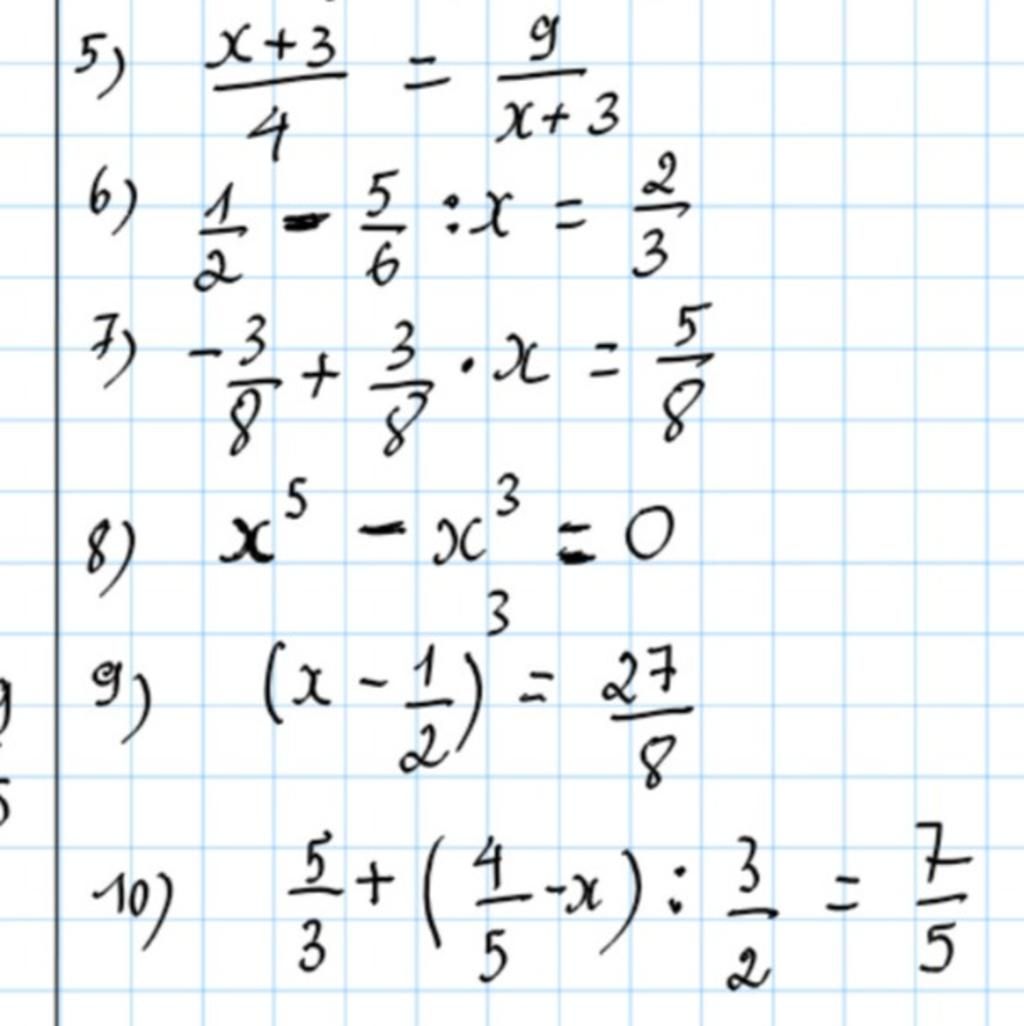 5) (x+3)/4 = 9/(x+3)
6) 1/2 - 5/6 : x = 2/3
7) -3/8 + 3/8 · x = 5/8
8) x⁵ - x³ = 0
9) (x - 1/2)³ = 27/8
10) 5/3 + (4/5 - x) : 3/2 = 7/5